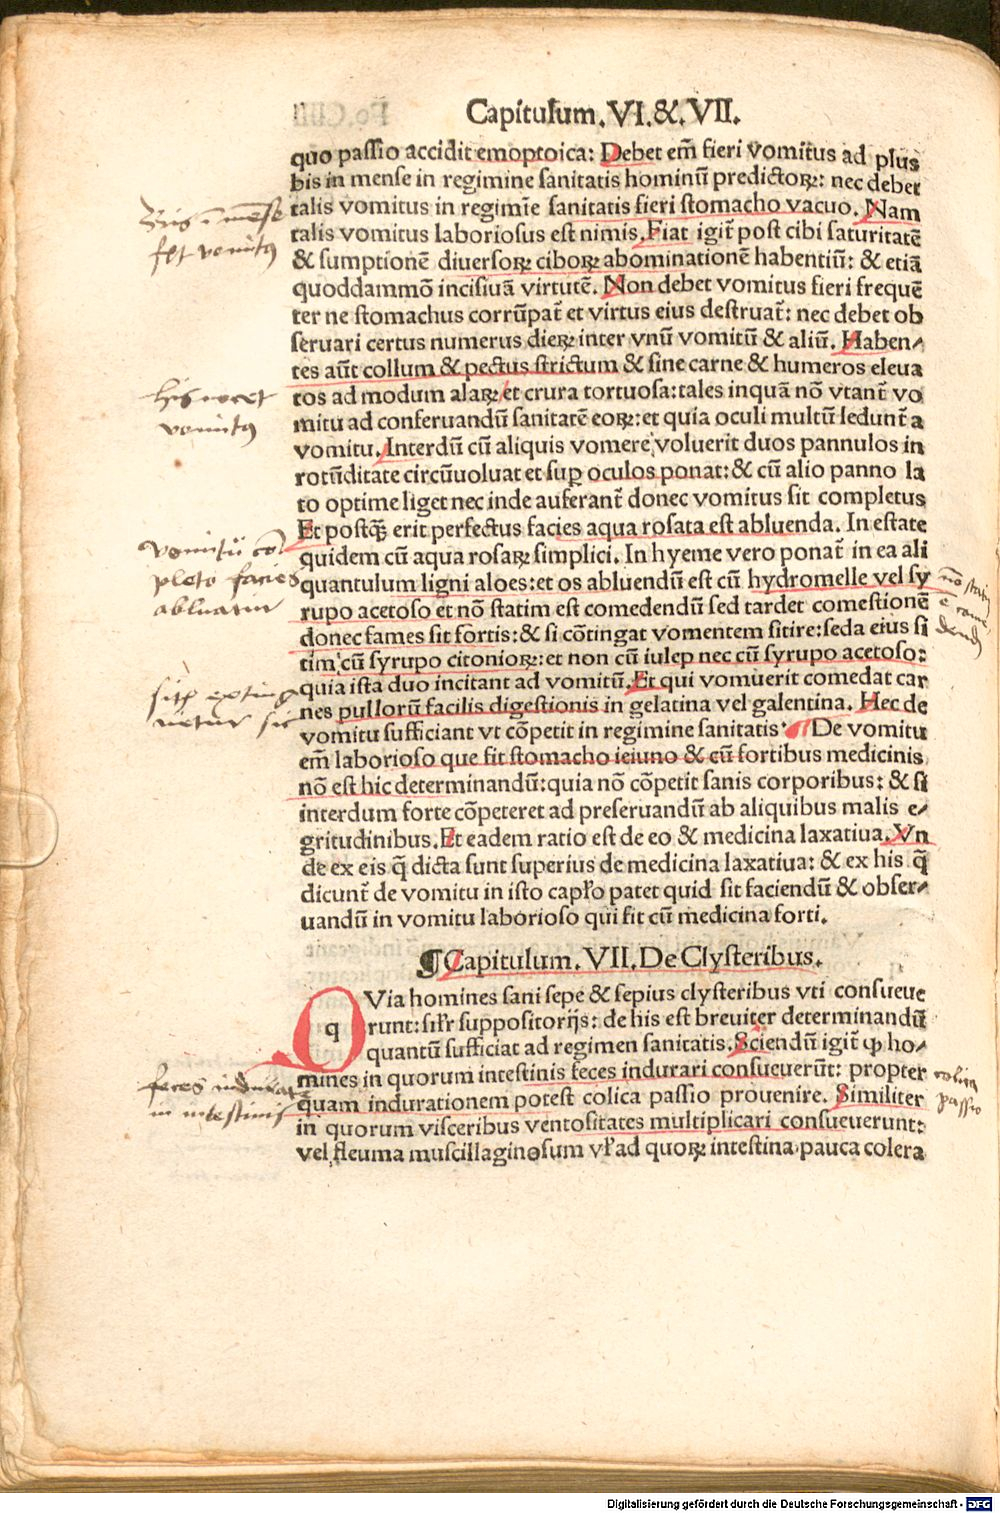 Capitulum.VI.&.VII.
quo passio accidit emoptoica: Debet em̄ fieri vomitus ad plus
bis in mense in regimine sanitatis hominū predictoꝝ: nec debet
talis vomitus in regimīe sanitatis fieri stomacho vacuo. Nam
talis vomitus laboriosus est nimis. Fiat igit̄ post cibi saturitatē
& sumptionē diuersoꝝ ciboꝝ abominationē habentiū: & etiā
quoddammō incisiuā virtutē. Non debet vomitus fieri frequē
ter ne stomachus corrūpat̄ et virtus eius destruat̄: nec debet ob
seruari certus numerus dieꝝ inter vnū vomitū & aliū. Haben⸗
tes aūt collum & pectus strictum & sine carne & humeros eleua
tos ad modum alaꝝ et crura tortuosa: tales inquā nō vtant̄ vo
mitu ad conseruandū sanitatē eoꝝ: et quia oculi multū ledunt̄ a
vomitu. Interdū cū aliquis vomere voluerit duos pannulos in
rotūditate circūuoluat et suꝑ oculos ponat: & cū alio panno la
to optime liget nec inde auferant̄ donec vomitus sit completus
Et postꝗ̄ erit perfectus facies aqua rosata est abluenda. In estate
quidem cū aqua rosaꝝ simplici. In hyeme vero ponat̄ in ea ali
quantulum ligni aloes: et os abluendū est cū hydromelle vel sy
rupo acetoso et nō statim est comedendū sed tardet comestionē
donec fames sit fortis: & si cōtingat vomentem sitire: seda eius si
tim cū syrupo citonioꝝ: et non cū iulep nec cū syrupo acetoso:
quia ista duo incitant ad vomitū. Et qui vomuerit comedat car
nes pullorū facilis digestionis in gelatina vel galentina. Hec de
vomitu sufficiant vt cōpetit in regimine sanitatis. De vomitu
em̄ laborioso que fit stomacho ieiuno & cū fortibus medicinis
nō est hic determinandū: quia nō cōpetit sanis corporibus: & si
interdum forte cōpeteret ad preseruandū ab aliquibus malis e⸗
gritudinibus. Et eadem ratio est de eo & medicina laxatiua. Vn
de ex eis q̄ dicta sunt superius de medicina laxatiua: & ex his q̄
dicunt̄ de vomitu in isto cap̄lo patet quid sit faciendū & obser⸗
uandū in vomitu laborioso qui fit cū medicina forti.
¶Capitulum. VII. De Clysteribus.
q Via homines sani sepe & sepius clysteribus vti consueue
runt: sil̄r suppositorijs: de his est breuiter determinandū
quantū sufficiat ad regimen sanitatis. Sciendū igit̄ ꝙ ho⸗
mines in quorum intestinis feces indurari consueuerūt: propter
quam indurationem potest colica passio prouenire. Similiter
in quorum visceribus ventositates multiplicari consueuerunt:
vel fleuma muscillaginosum vl̄ ad quoꝝ intestina pauca colera
Bis ī mēse
fit vomitꝰ
his nocet
vomitus
vomitū cō
pleto facies
abluatur
nō statim
ē come
dendū
sitis extingu
uetur sic
feces indurat
in intestinis
colica
passio
Digitalisierung gefördert durch die Deutsche Forschungsgemeinschaft - DFG